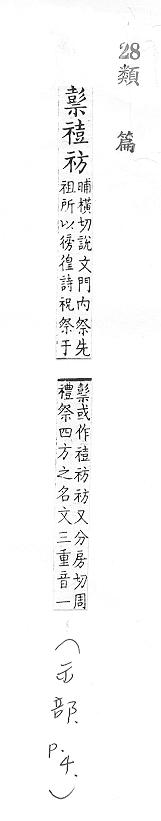 28 類篇
祊
晡橫切說文門內祭先
祖所以徬徨詩祝祭于
或作祊祊又分房切周
禮祭四方之名文三重音一
(示部. p.4.)